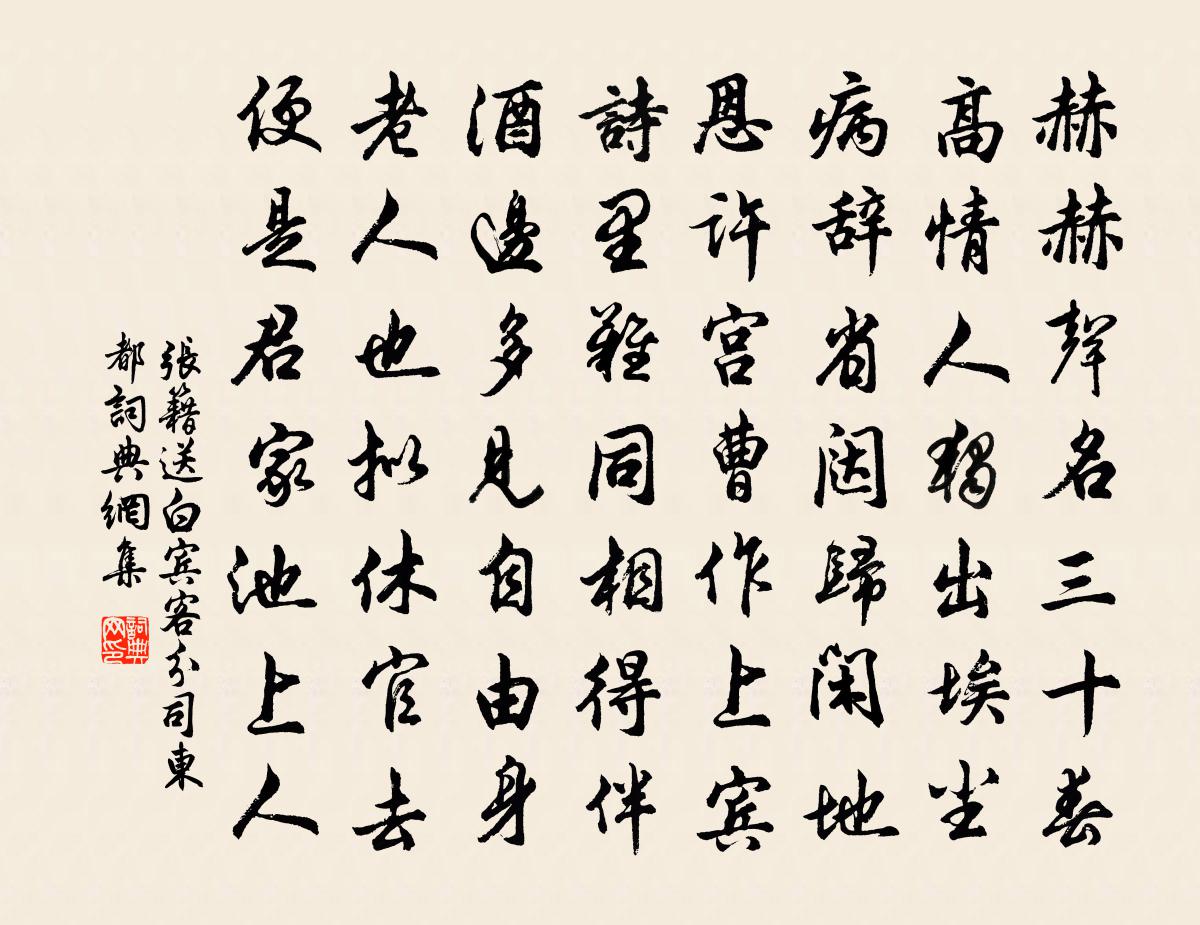 赫赫聲名三十春
高情人獨出埃尘
病辞省闼歸閑地
恩許宫曹作上宾
詩里難同相得伴
酒邊多見自由身
老人也拟休官去
便是君家池上人
張籍送白宾客分司東
都詞典網集
詞典网印